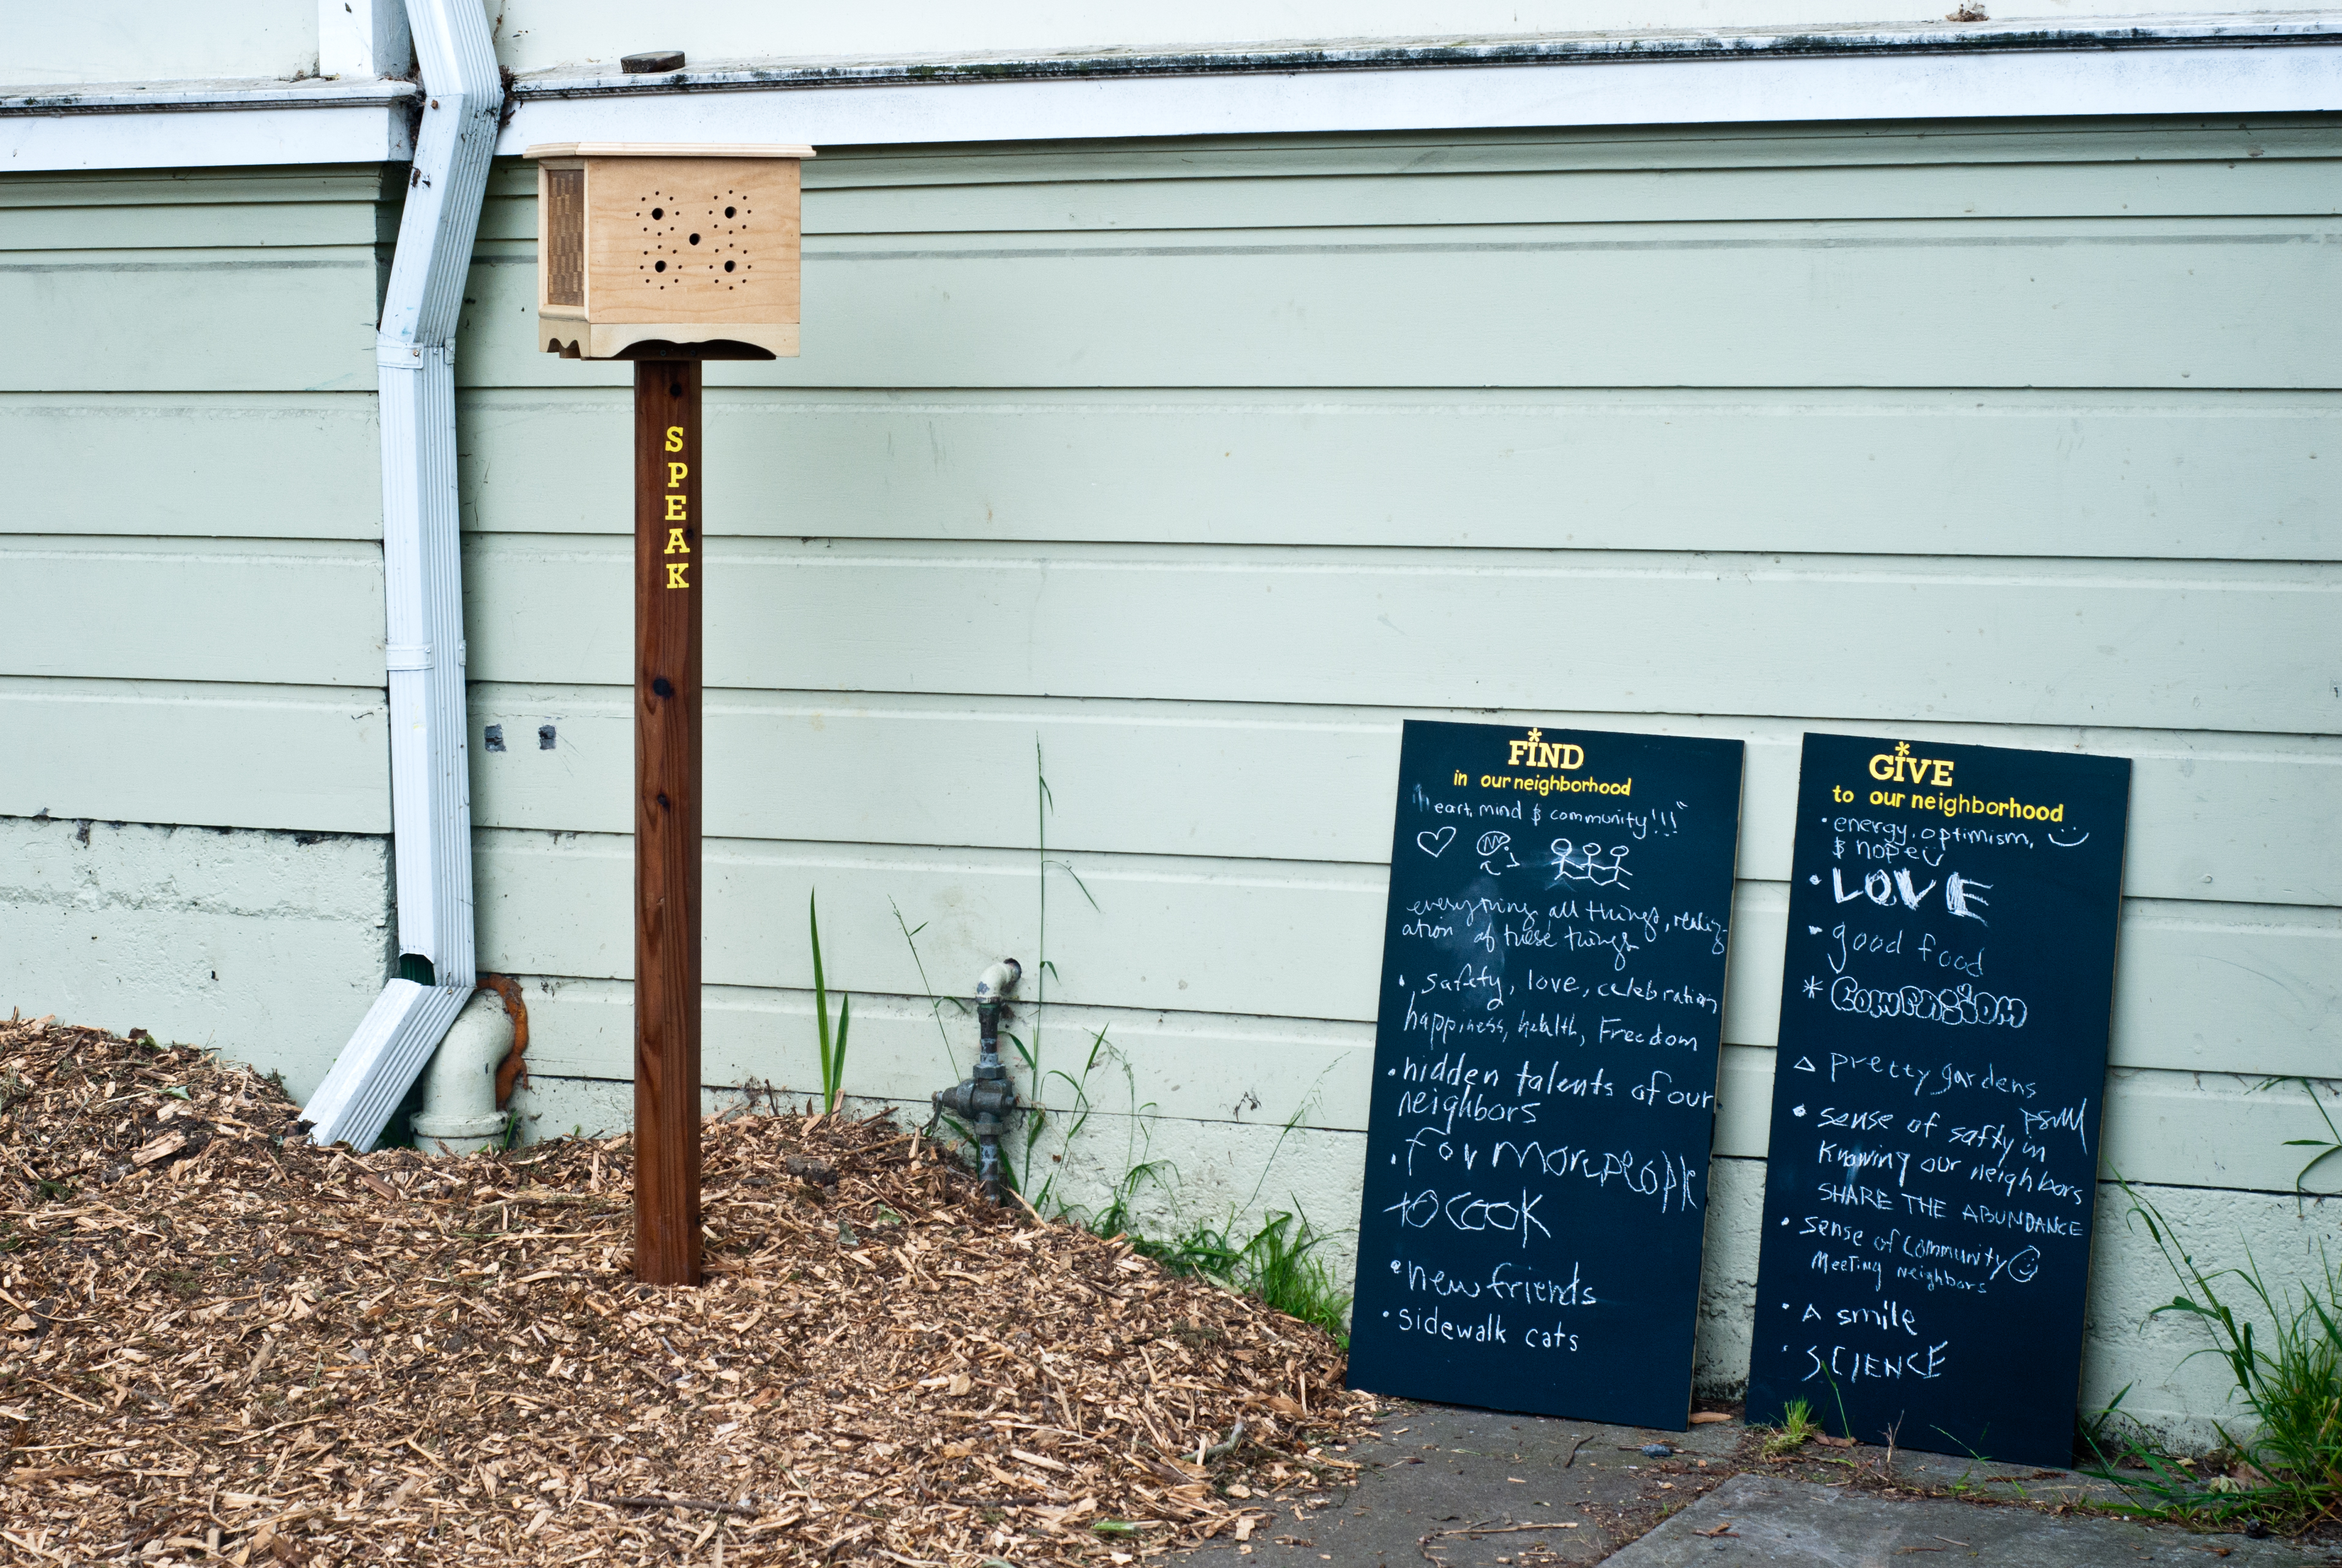 SPEAK
FIND
in our neighborhood
"heart, mind & community!!!"
everything, all things, realiz-
ation of these things
• safety, love, celebration
happiness, health, Freedom
• hidden talents of our
neighbors
• for more people
to cook
• new friends
• sidewalk cats
GIVE
to our neighborhood
• energy, optimism,
& hope
• LOVE
• good food
* COMPASSION
△ pretty gardens
• sense of safty in
Knowing our neighbors
SHARE THE ABUNDANCE
• sense of Community
Meeting neighbors
• A smile
• SCIENCE